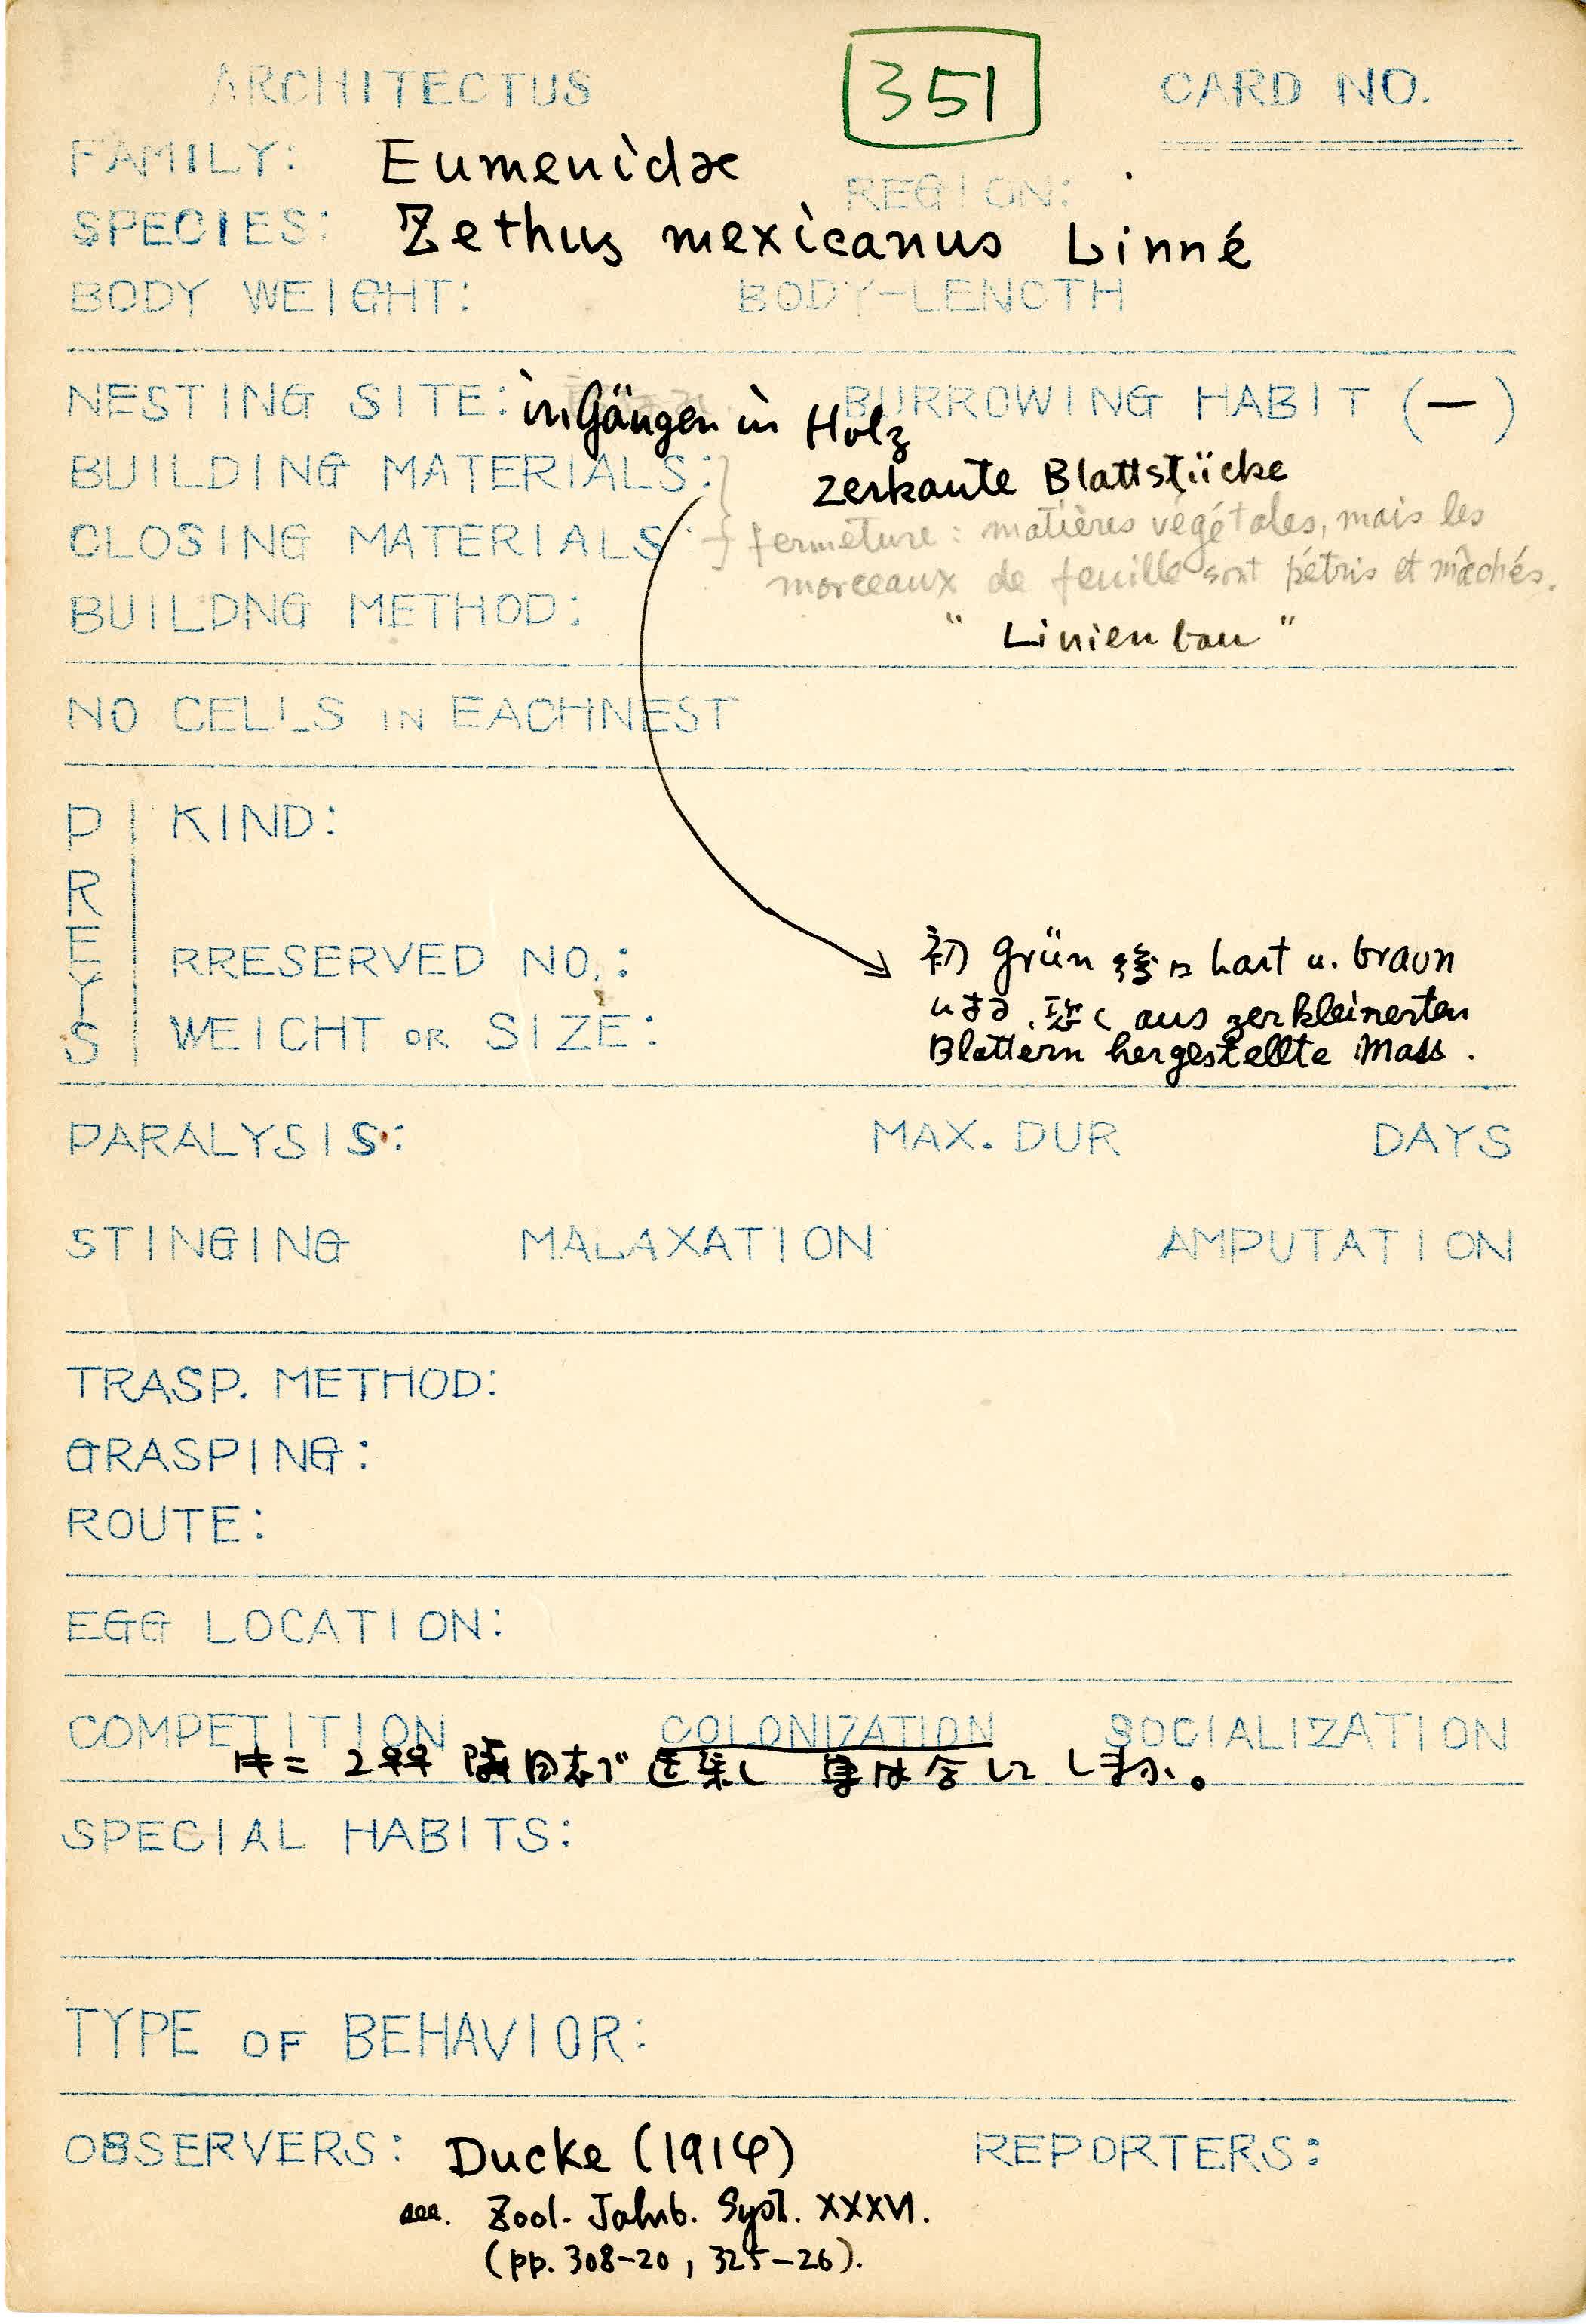 ARCHITECTUS 351 CARD NO.
FAMILY: Eumenidæ
REGION:
SPECIES: Zethus mexicanus Linné
BODY WEIGHT: BODY-LENGTH
NESTING SITE: in Gängen in Holz BURROWING HABIT (—)
BUILDING MATERIALS: zerkaute Blattstücke
CLOSING MATERIALS: fermeture: matières végétales, mais les
morceaux de feuille sont pétris et mâchés.
BUILDNG METHOD: "Linienbau"
NO CELLS IN EACHNEST
PREYS
KIND:
RRESERVED NO.:
初 grün 後 hart u. braun
WEIGHT OR SIZE:
aus zerkleinerten
Blättern hergestellte Mass.
PARALYSIS: MAX. DUR DAYS
STINGING MALAXATION AMPUTATION
TRASP. METHOD:
GRASPING:
ROUTE:
EGG LOCATION:
COMPETITION COLONIZATION SOCIALIZATION
2♀♀
SPECIAL HABITS:
TYPE OF BEHAVIOR:
OBSERVERS: Ducke (1914) REPORTERS:
see. Zool. Jahrb. Syst. XXXVI.
(pp. 308-20, 325-26).